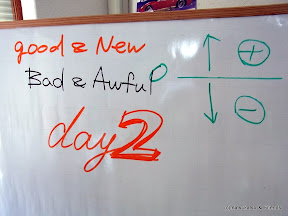 good & New
Bad & Awful
day 2
+
-